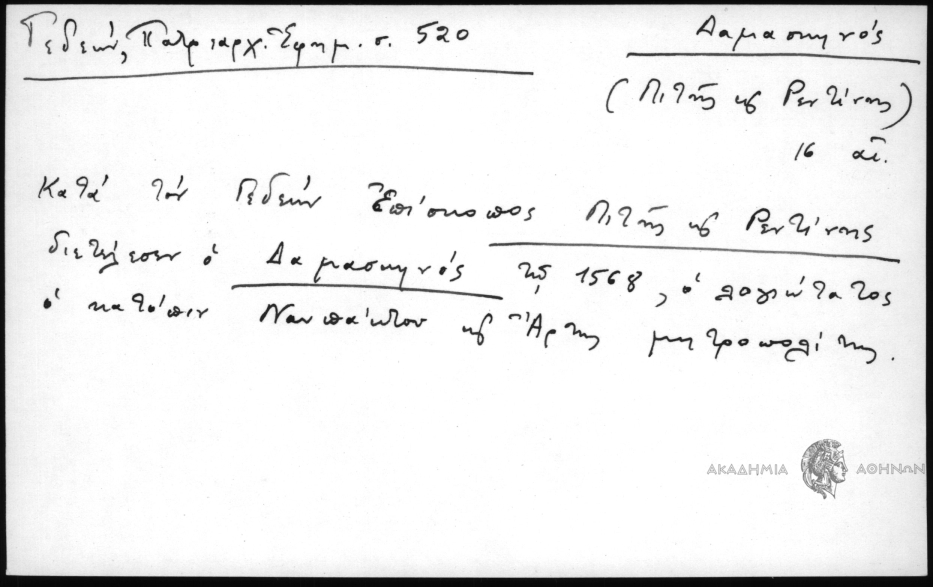 Γεδεών, Πατριαρχ. Ἐφημ. σ. 520
Δαμασκηνός
(Λιτζῆς καὶ Ρεντίνης)
16 αἰ.
Κατὰ τὸν Γεδεὼν Ἐπίσκοπος Λιτζῆς καὶ Ρεντίνης
διετέλεσεν ὁ Δαμασκηνός τῷ 1568, ὁ λογιώτατος
ὁ κατόπιν Ναυπάκτου καὶ Ἄρτης μητροπολίτης.
ΑΚΑΔΗΜΙΑ ΑΘΗΝΩΝ